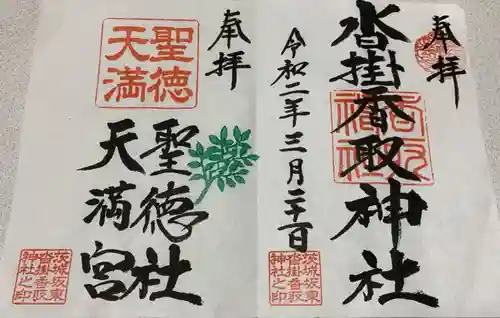 奉拝
沓掛香取神社
香取神社
令和二年三月二十一日
茨城坂東
沓掛香取
神社之印
奉拝
聖徳社
天満宮
聖徳
天満
茨城坂東
沓掛香取
神社之印